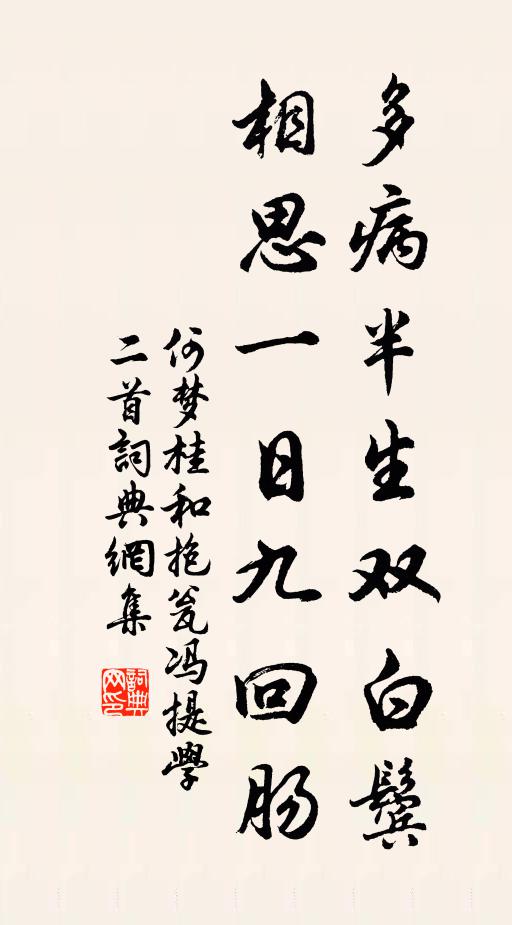 多病半生双白鬓
相思一日九回肠
何梦桂和抱瓮冯提學
二首詞典網集
詞典网印